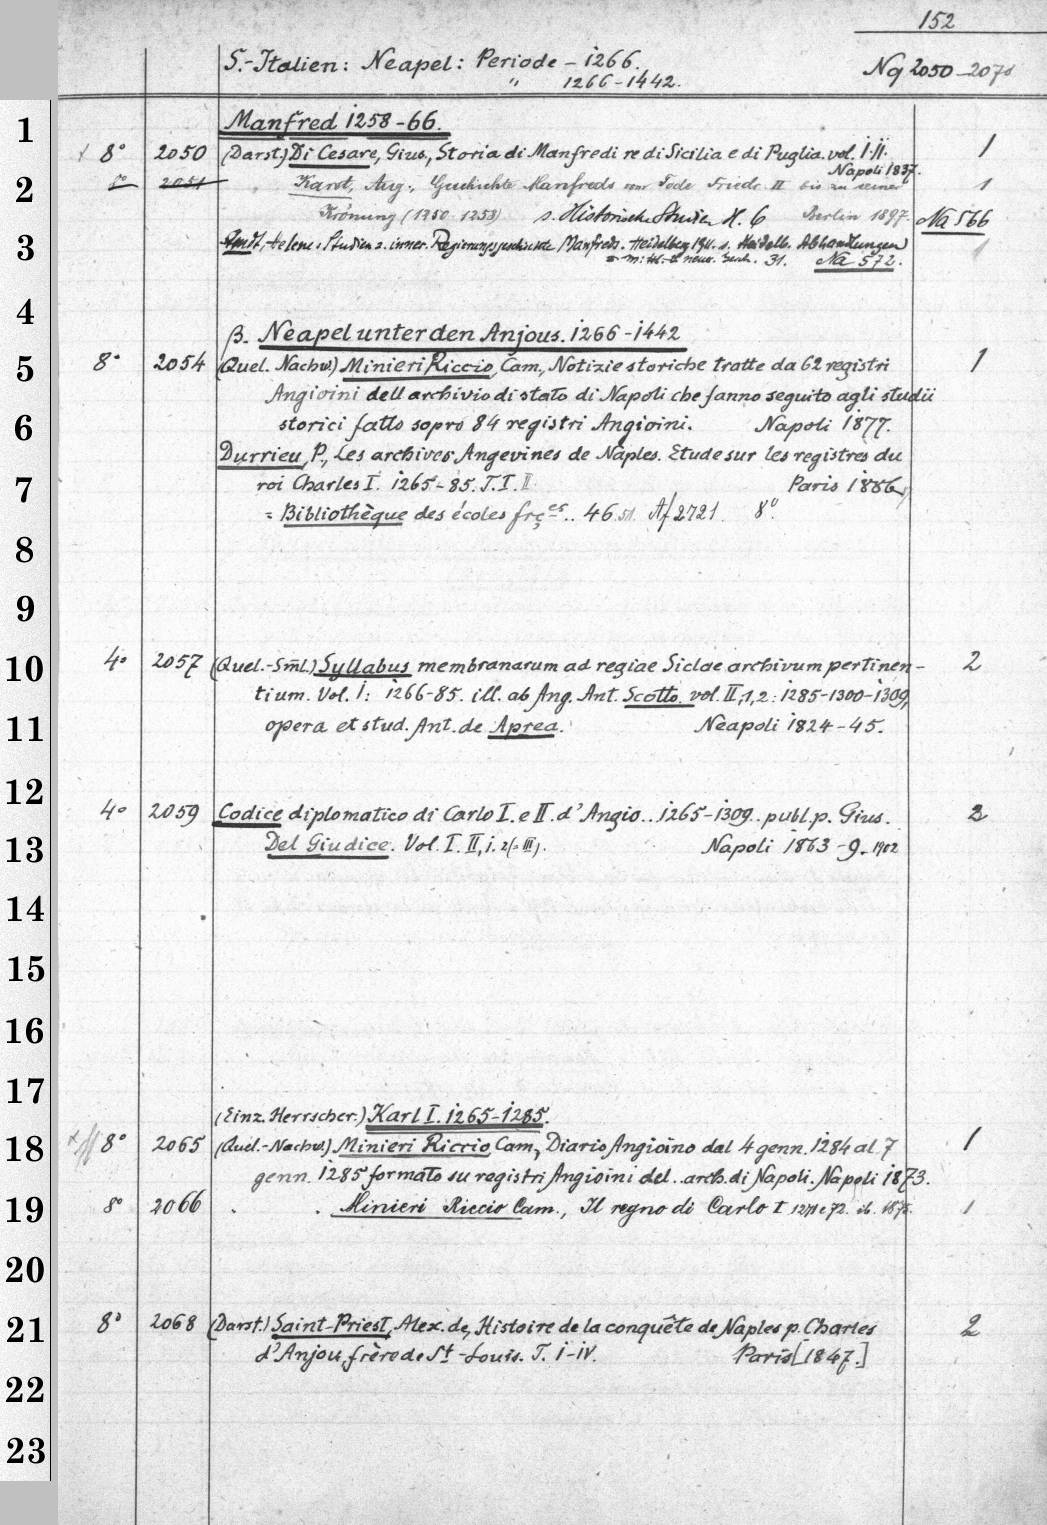 152
S.-Italien: Neapel: Periode - 1266.
" 1266-1442.
Nq 2050-2070
1
Manfred 1258-66.
8° 2050 (Darst.) Di Cesare, Gius., Storia di Manfredi re di Sicilia e di Puglia. vol. I.II. 1
Napoli 1837.
2
8° 2051 " Karst, Aug., Geschichte Manfreds vom Tode Friedr. II bis zu seiner 1
Krönung (1250-1258) s. Historische Studien H. 6 Berlin 1897. Na 566
3
Arndt, Helene: Studien z. inner. Regierungsgeschichte Manfreds. Heidelberg 1911. s. Heidelb. Abhandlungen 1
z. m: u. neuer. Gesch. 31. Na 572.
4
β. Neapel unter den Anjous. 1266-1442
5
8° 2054 (Quel. Nachw.) Minieri Riccio, Cam., Notizie storiche tratte da 62 registri 1
Angioini dell archivio di stato di Napoli che fanno seguito agli studii
6
storici fatto sopra 84 registri Angioini. Napoli 1877.
Durrieu, P., Les archives Angevines de Naples. Etude sur les registres du
7
roi Charles I. 1265-85. T. I. II Paris 1886,
= Bibliothèque des écoles frçes.. 46.51. Af 2721. 8°.
8
9
10
4° 2057 (Quel.-Sml.) Syllabus membranarum ad regiae Siclae archivum pertinen- 2
tium. Vol. I: 1266-85. ill. ab Ang. Ant. Scotto. vol. II,1,2: 1285-1300-1309,
11
opera et stud. Ant. de Aprea. Neapoli 1824-45.
12
4° 2059 Codice diplomatico di Carlo I. e II. d'Angio.. 1265-1309.. publ. p. Gius. 3
13
Del Giudice. Vol. I. II,1. 2(=III). Napoli 1863-9.-1902
14
15
16
17
(Einz. Herrscher.) Karl I. 1265-1285.
18
8° 2065 (Quel.-Nachw.) Minieri Riccio, Cam., Diario Angioino dal 4 genn. 1284 al 7 1
genn. 1285 formato su registri Angioini del.. arch. di Napoli. Napoli 1873.
19
8° 2066 . . Minieri Riccio Cam., Il regno di Carlo I 1271 e 72. ib. 1875. 1
20
21
8° 2068 (Darst.) Saint-Priest, Alex. de, Histoire de la conquête de Naples p. Charles 2
d'Anjou, frère de St-Louis. T. I-IV. Paris [1847.]
22
23